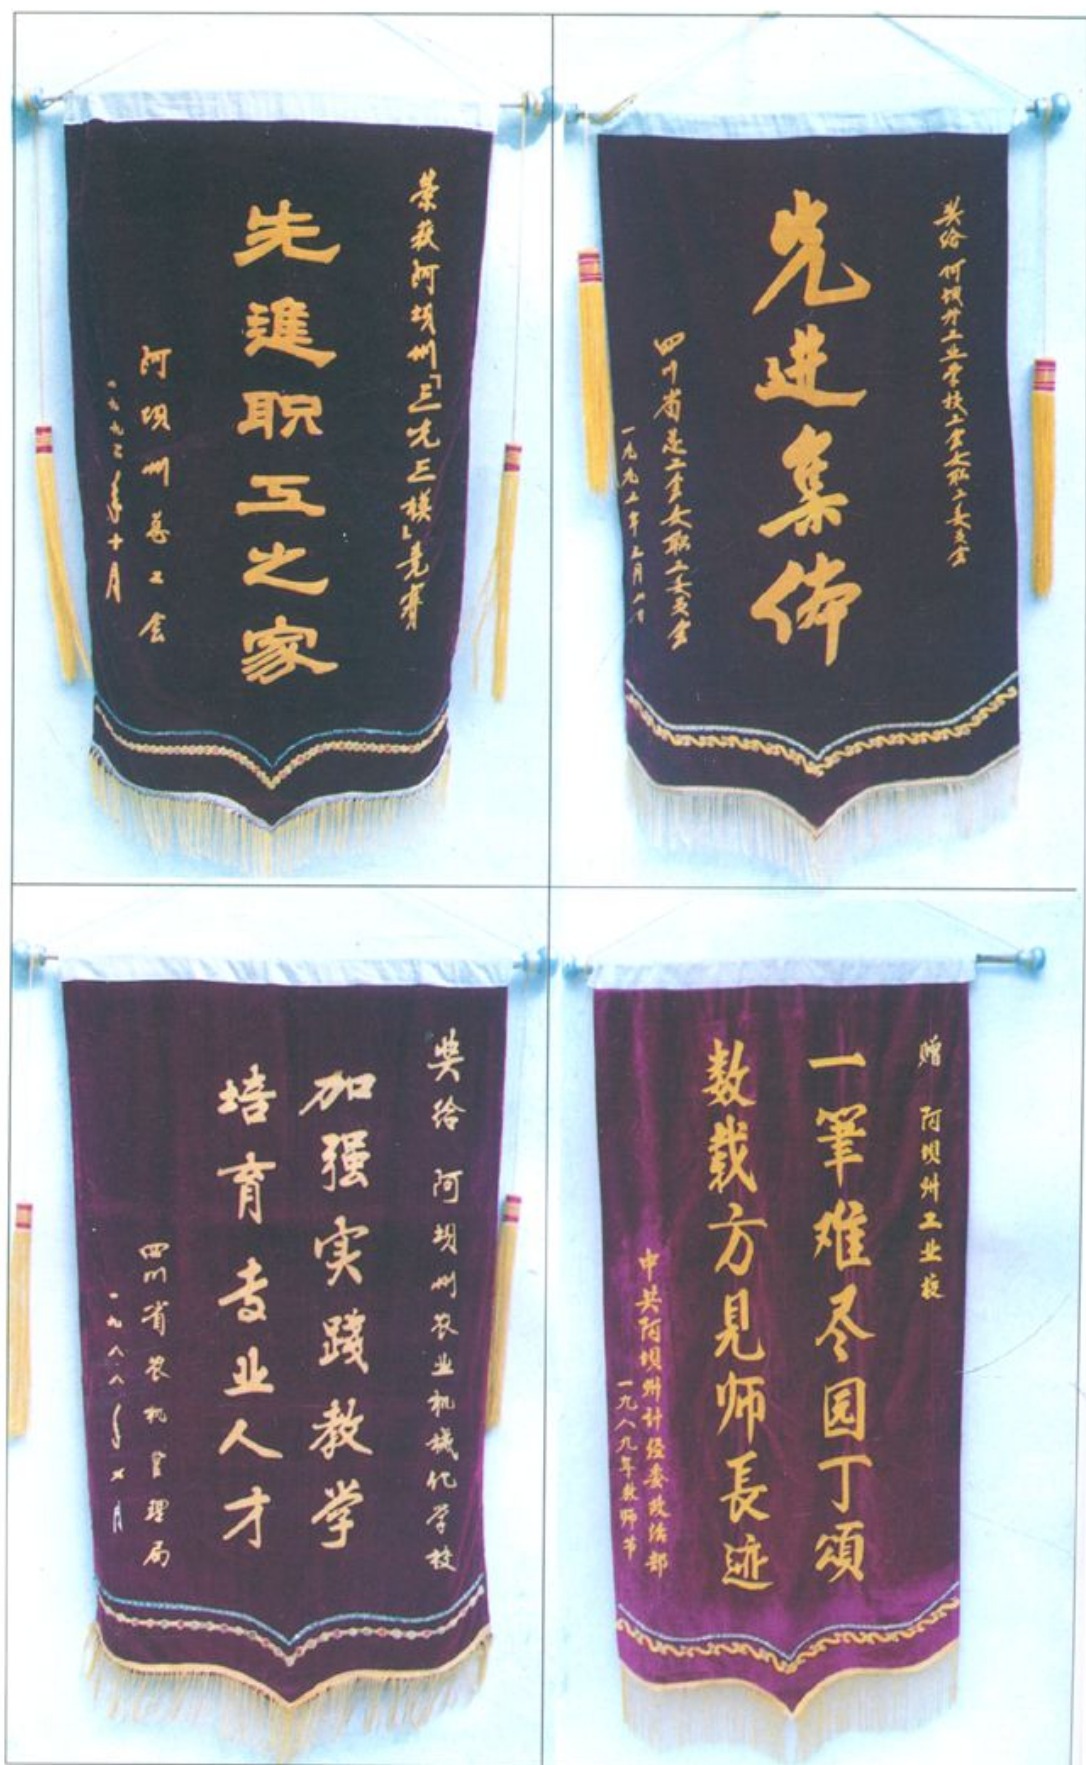 荣获阿坝州「三先三模」竞赛
先進职工之家
阿坝州总工会
年十月
奖给 阿坝州工业学校工会女职工委员会
先进集体
四川省总工会女职工委员会
奖给 阿坝州农业机械化学校
加强实践教学
培育专业人才
四川省农机管理局
一九八八年七月
赠 阿坝州工业校
一筆难尽园丁頌
数载方见师長迹
中共阿坝州计经委政治部
一九八九年教师节